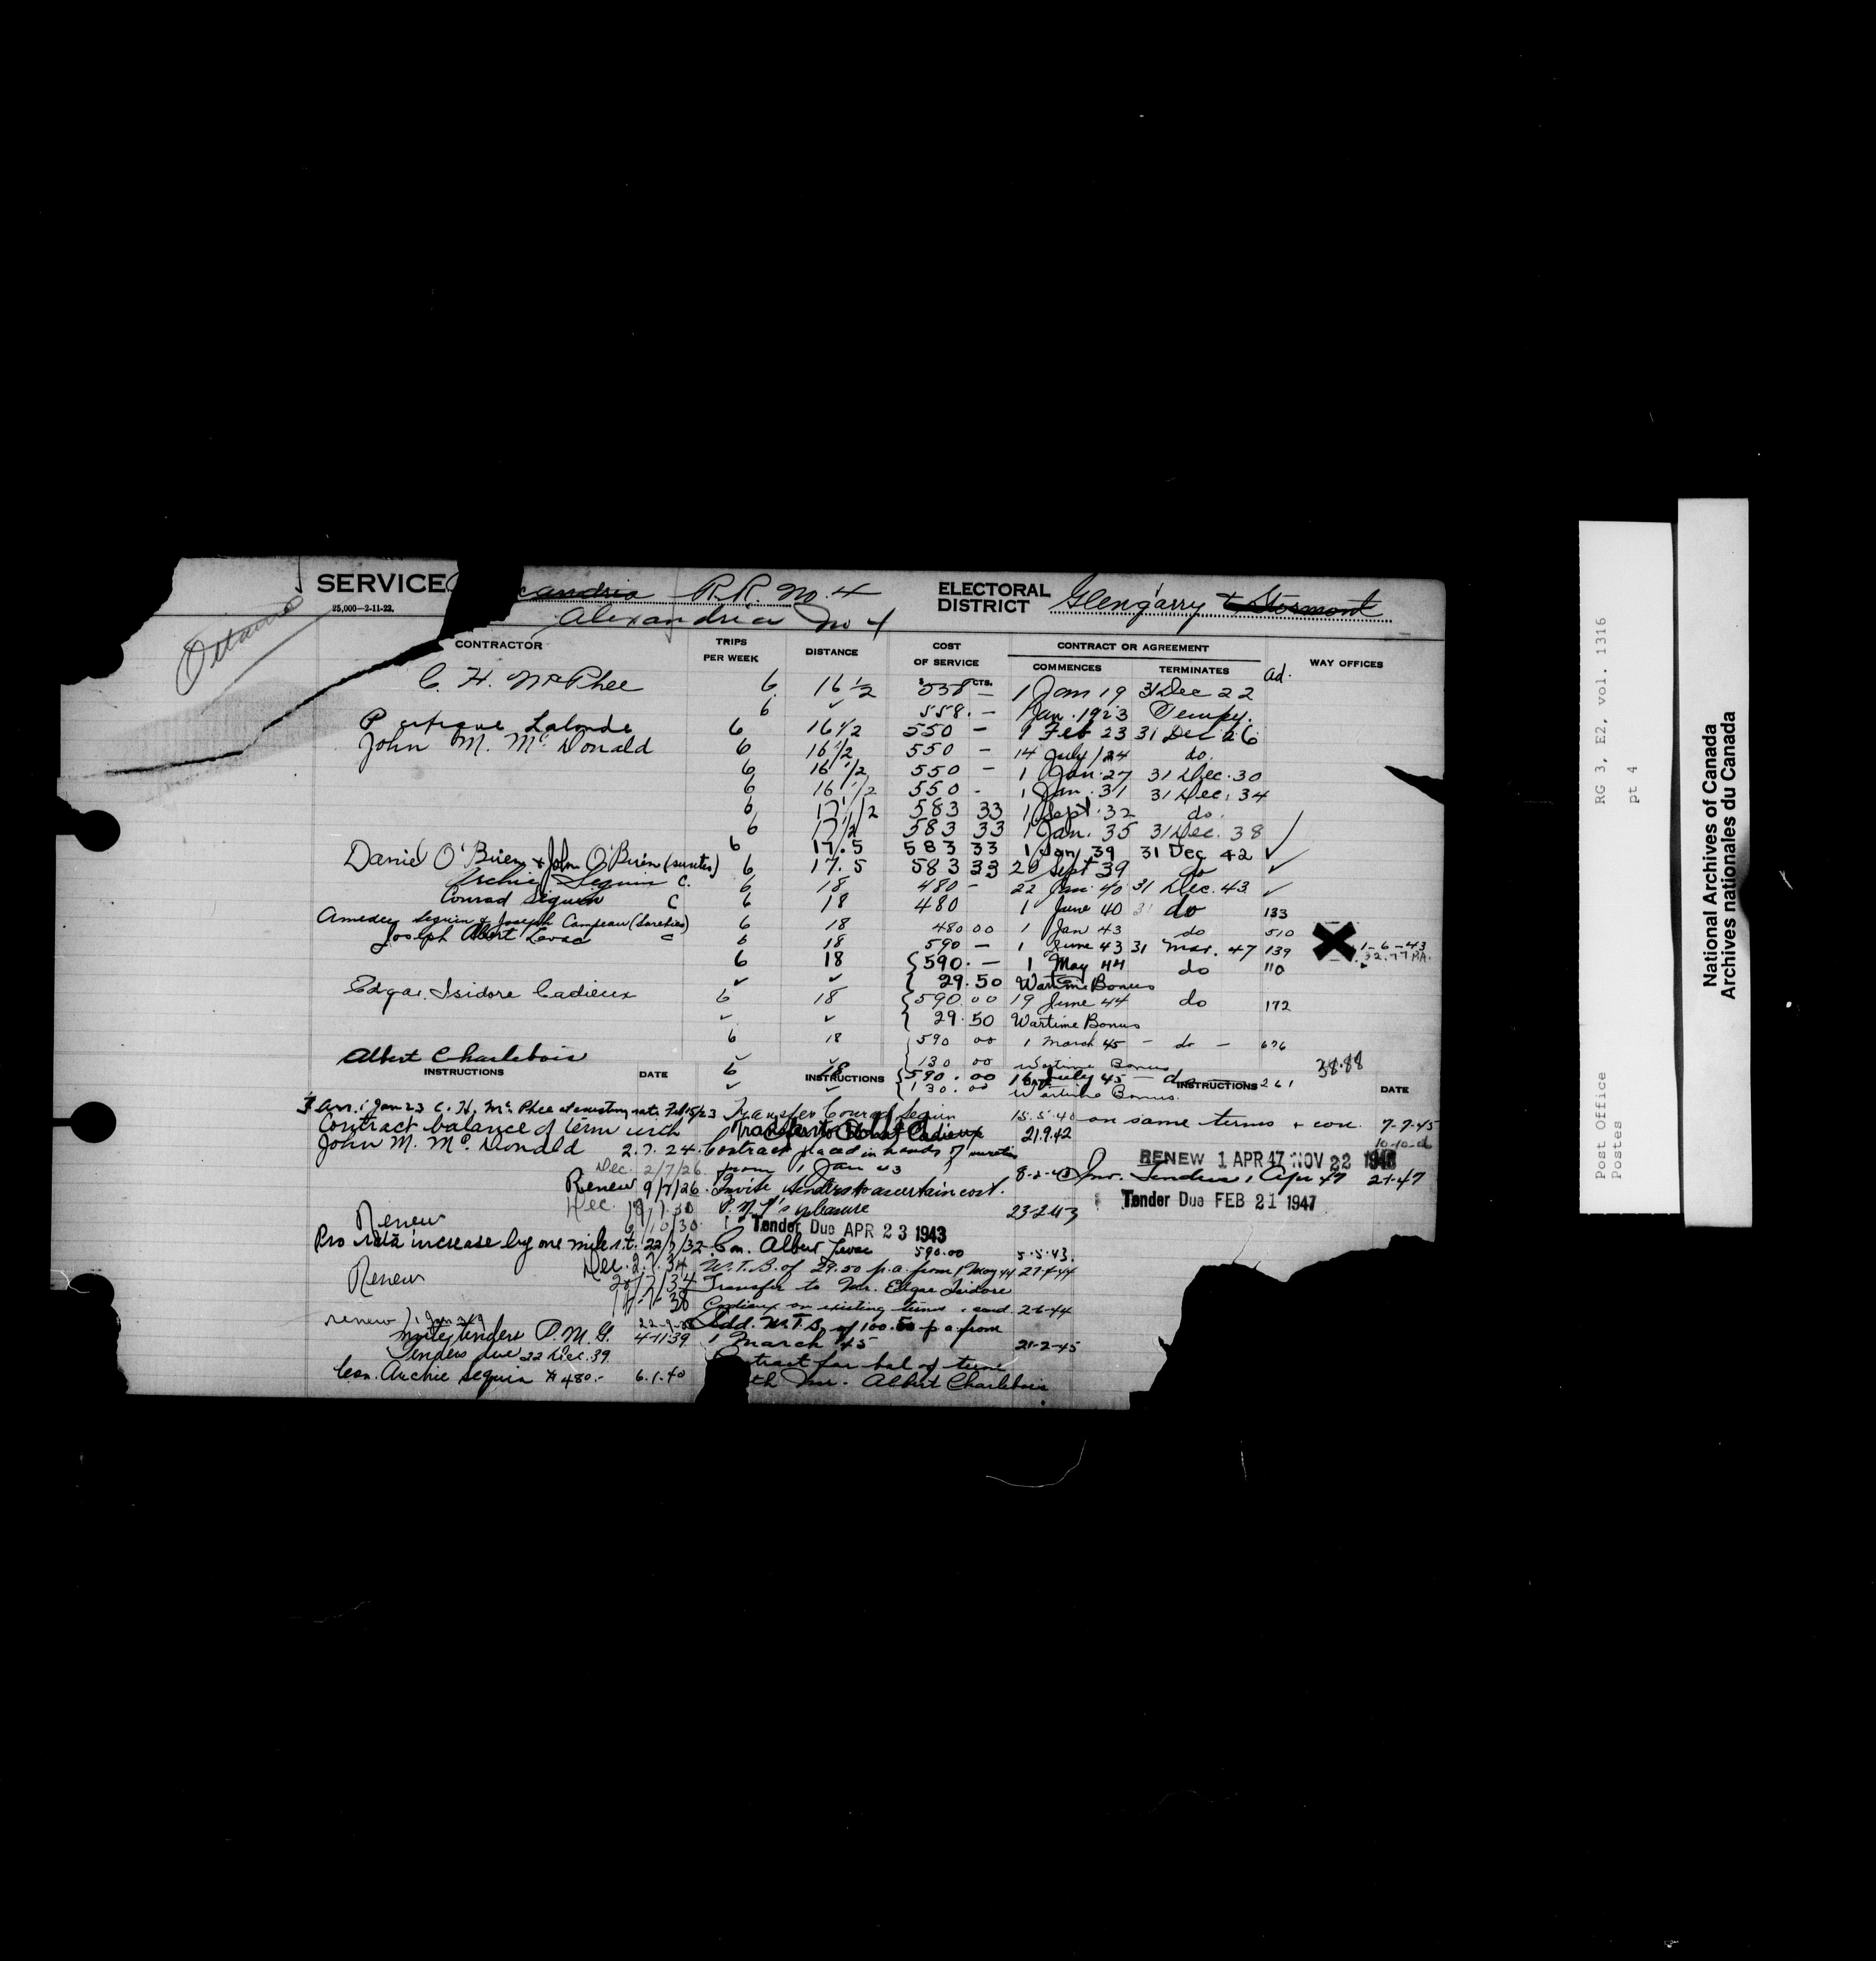 SERVICE
R.R. No. 4
25,000—2-11-22.
Alexandria No 4
ELECTORAL DISTRICT Glengarry & Stormont
Ottawa
CONTRACTOR TRIPS PER WEEK DISTANCE COST OF SERVICE CONTRACT OR AGREEMENT COMMENCES TERMINATES ad. WAY OFFICES
$ CTS.
C. H. McPhee 6 16 1/2 558 — 1 Jan 19 31 Dec 22
6 ✓ 558. — 1 Jan. 1923 Tempy.
Lalonde 6 16 1/2 550 — 9 Feb 23 31 Dec 26
John M. McDonald 6 16 1/2 550 — 14 July /24 do.
6 16 1/2 550 — 1 Jan. 27 31 Dec. 30
6 16 1/2 550 - 1 Jan. 31 31 Dec. 34
6 17 1/2 583 33 1 Sept. 32 do.
6 17 1/2 583 33 1 Jan. 35 31 Dec. 38
6 17.5 583 33 1 Jan 39 31 Dec 42 ✓
Daniel O'Brien & John O'Brien (sureties) 6 17.5 583 33 20 Sept 39 do ✓
Archie Seguin C. 6 18 480 - 22 Jan. 40 31 Dec. 43 ✓
Conrad Seguin C 6 18 480 1 June 40 do 133
Amedey Seguin & Joseph Campeau (Sureties) 6 18 480 00 1 Jan 43 do 510
Joseph Albert Levac C 6 18 590 — 1 June 43 31 Mar. 47 139 1-6-43
32.77 P.A.
6 18 590. — 1 May 44 do 110
✓ ✓ 29.50 Wartime Bonus
Edgar Isidore Cadieux 6 18 590.00 19 June 44 do 172
✓ ✓ 29.50 Wartime Bonus
6 18 590 00 1 March 45 - do - 676
✓ ✓ 130 00 Wartime Bonus
Albert Charlebois 6 18 590.00 16 July 45 — do 261 38.88
✓ ✓ 130.00 Wartime Bonus.
INSTRUCTIONS DATE INSTRUCTIONS DATE INSTRUCTIONS DATE
1 Jan 23 C. H. McPhee at existing rate Feb 15/23
Contract balance of term with
John M. McDonald 2.7.24.
Dec. 2/7/26
Renew 9/7/26
Dec.
Renew 6/10/30
Pro rata increase by one mile r.t. 22/7/32
Dec. 2.7.34
Renew
renew 1 Jan 39
Invite tenders P.M.G. 4-11-39
Tenders due 22 Dec. 39.
Con. Archie Seguin $480.- 6.1.40
Transfer Conrad Seguin 15.5.40
Transfer to Cadieux 21.9.42
Contract placed in hands of sureties
from 1 Jan 43 8-2-43
Invite tenders to ascertain cost.
P.M.G's pleasure 23-2-43
Tender Due APR 23 1943
Con. Albert Levac 590.00 5.5.43.
W.T.B. of 29.50 p.a. from 1 May 44 27-4-44
Transfer to Mr. Edgar Isidore
Cadieux on existing terms & cond. 2-6-44
Add. W.T.B. of 100.50 p.a. from
1 March 45 21-2-45
tract for bal of term
th Mr. Albert Charlebois
on same terms & con. 7-7-45
RENEW 1 APR 47 NOV 22 1946
Inv. Tenders 1 Apr 47 2-1-47
Tender Due FEB 21 1947
RG 3, E2, vol. 1316
pt 4
Post Office
Postes
National Archives of Canada
Archives nationales du Canada